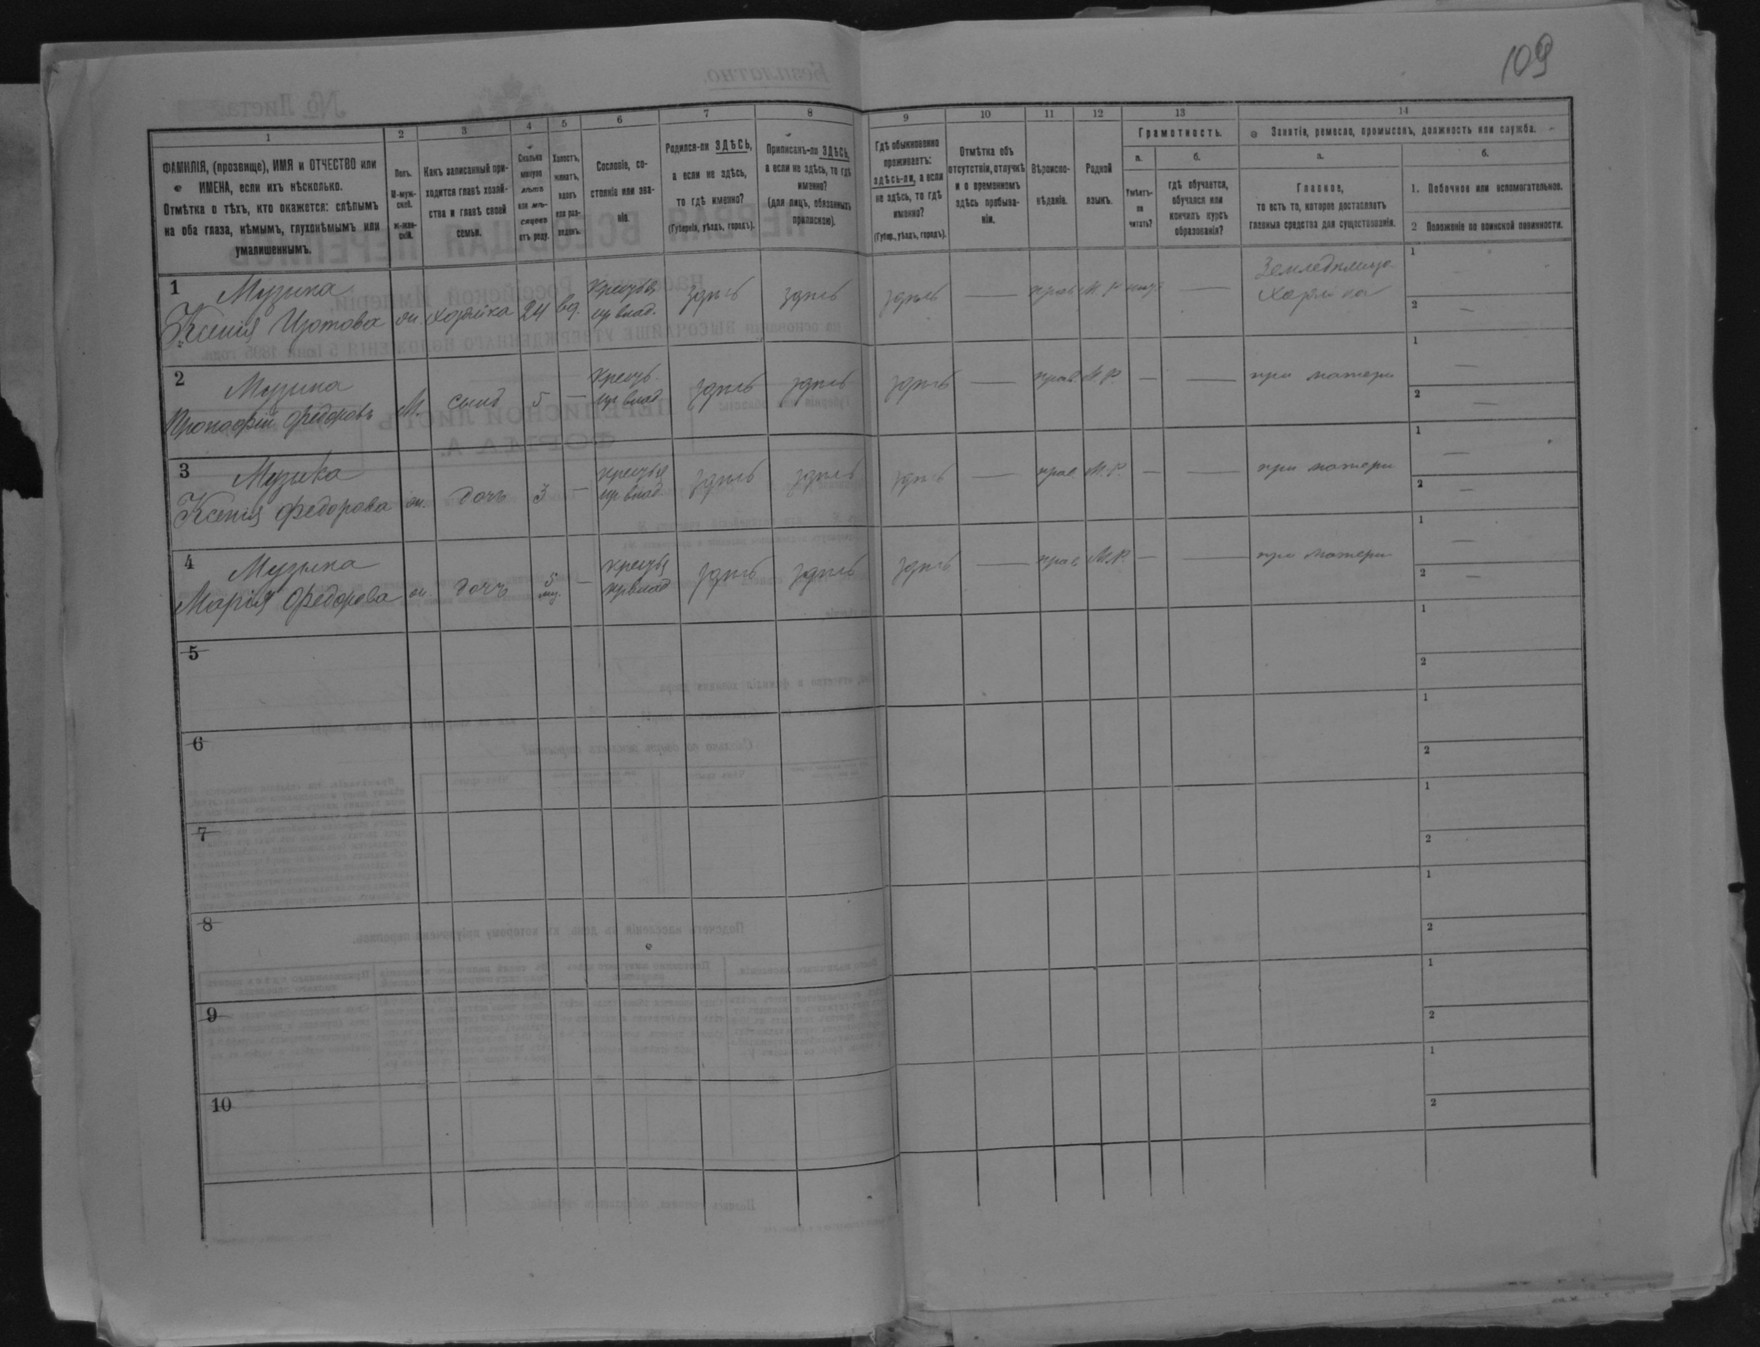 109
1
2
3
4
5
6
7
8
9
10
11
12
13
14
ФАМИЛІЯ, (прозвище), ИМЯ и ОТЧЕСТВО или
ИМЕНА, если ихъ нѣсколько.
Отмѣтка о тѣхъ, кто окажется: слѣпымъ
на оба глаза, нѣмымъ, глухонѣмымъ или
умалишеннымъ.
Полъ.
М-муж-
ской.
Ж-жен-
скій.
Какъ записанный при-
ходится главѣ хозяй-
ства и главѣ своей
семьи.
Сколько
минуло
лѣтъ
или мѣ-
сяцевъ
отъ роду.
Холостъ,
женатъ,
вдовъ
или раз-
веденъ.
Сословіе, со-
стояніе или зва-
ніе
Родился-ли ЗДѢСЬ,
а если не здѣсь,
то гдѣ именно?
(Губернія, уѣздъ, городъ).
Приписанъ-ли ЗДѢСЬ,
а если не здѣсь, то гдѣ
именно?
(для лицъ, обязанныхъ
припискою).
Гдѣ обыкновенно
проживаетъ:
здѣсь-ли, а если
не здѣсь, то гдѣ
именно?
(Губер., уѣздъ, городъ).
Отмѣтка объ
отсутствіи, отлучкѣ
и о временномъ
здѣсь пребыва-
ніи.
Вѣроиспо-
вѣданіе.
Родной
языкъ.
Грамотность.
а.
Умѣетъ-
ли
читать?
б.
гдѣ обучается,
обучался или
кончилъ курсъ
образованія?
Занятіе, ремесло, промыселъ, должность или служба.
а.
Главное,
то есть то, которое доставляетъ
главныя средства для существованія.
б.
1. Побочное или вспомогательное.
2 Положеніе по воинской повинности.
1 Музыка Земледѣлица 1
Ксенія Изотова ж. хозяйка 24 вд. здѣсь здѣсь здѣсь — прав М.Р. — хозяйка 2
2 Музыка 1
Прокофій Федоровъ М. сынъ 5 — здѣсь здѣсь здѣсь — прав М.Р. — — при матери — 2 —
3 Музыка 1
Ксенія Федорова ж. дочь 3 — здѣсь здѣсь здѣсь — прав М.Р. — — при матери — 2 —
4 Музыка 1
Марія Федорова ж. дочь 5 — здѣсь здѣсь здѣсь — прав М.Р. — — при матери — 2 —
5 1
2
6 1
2
7 1
2
8 1
2
9 1
2
10 1
2